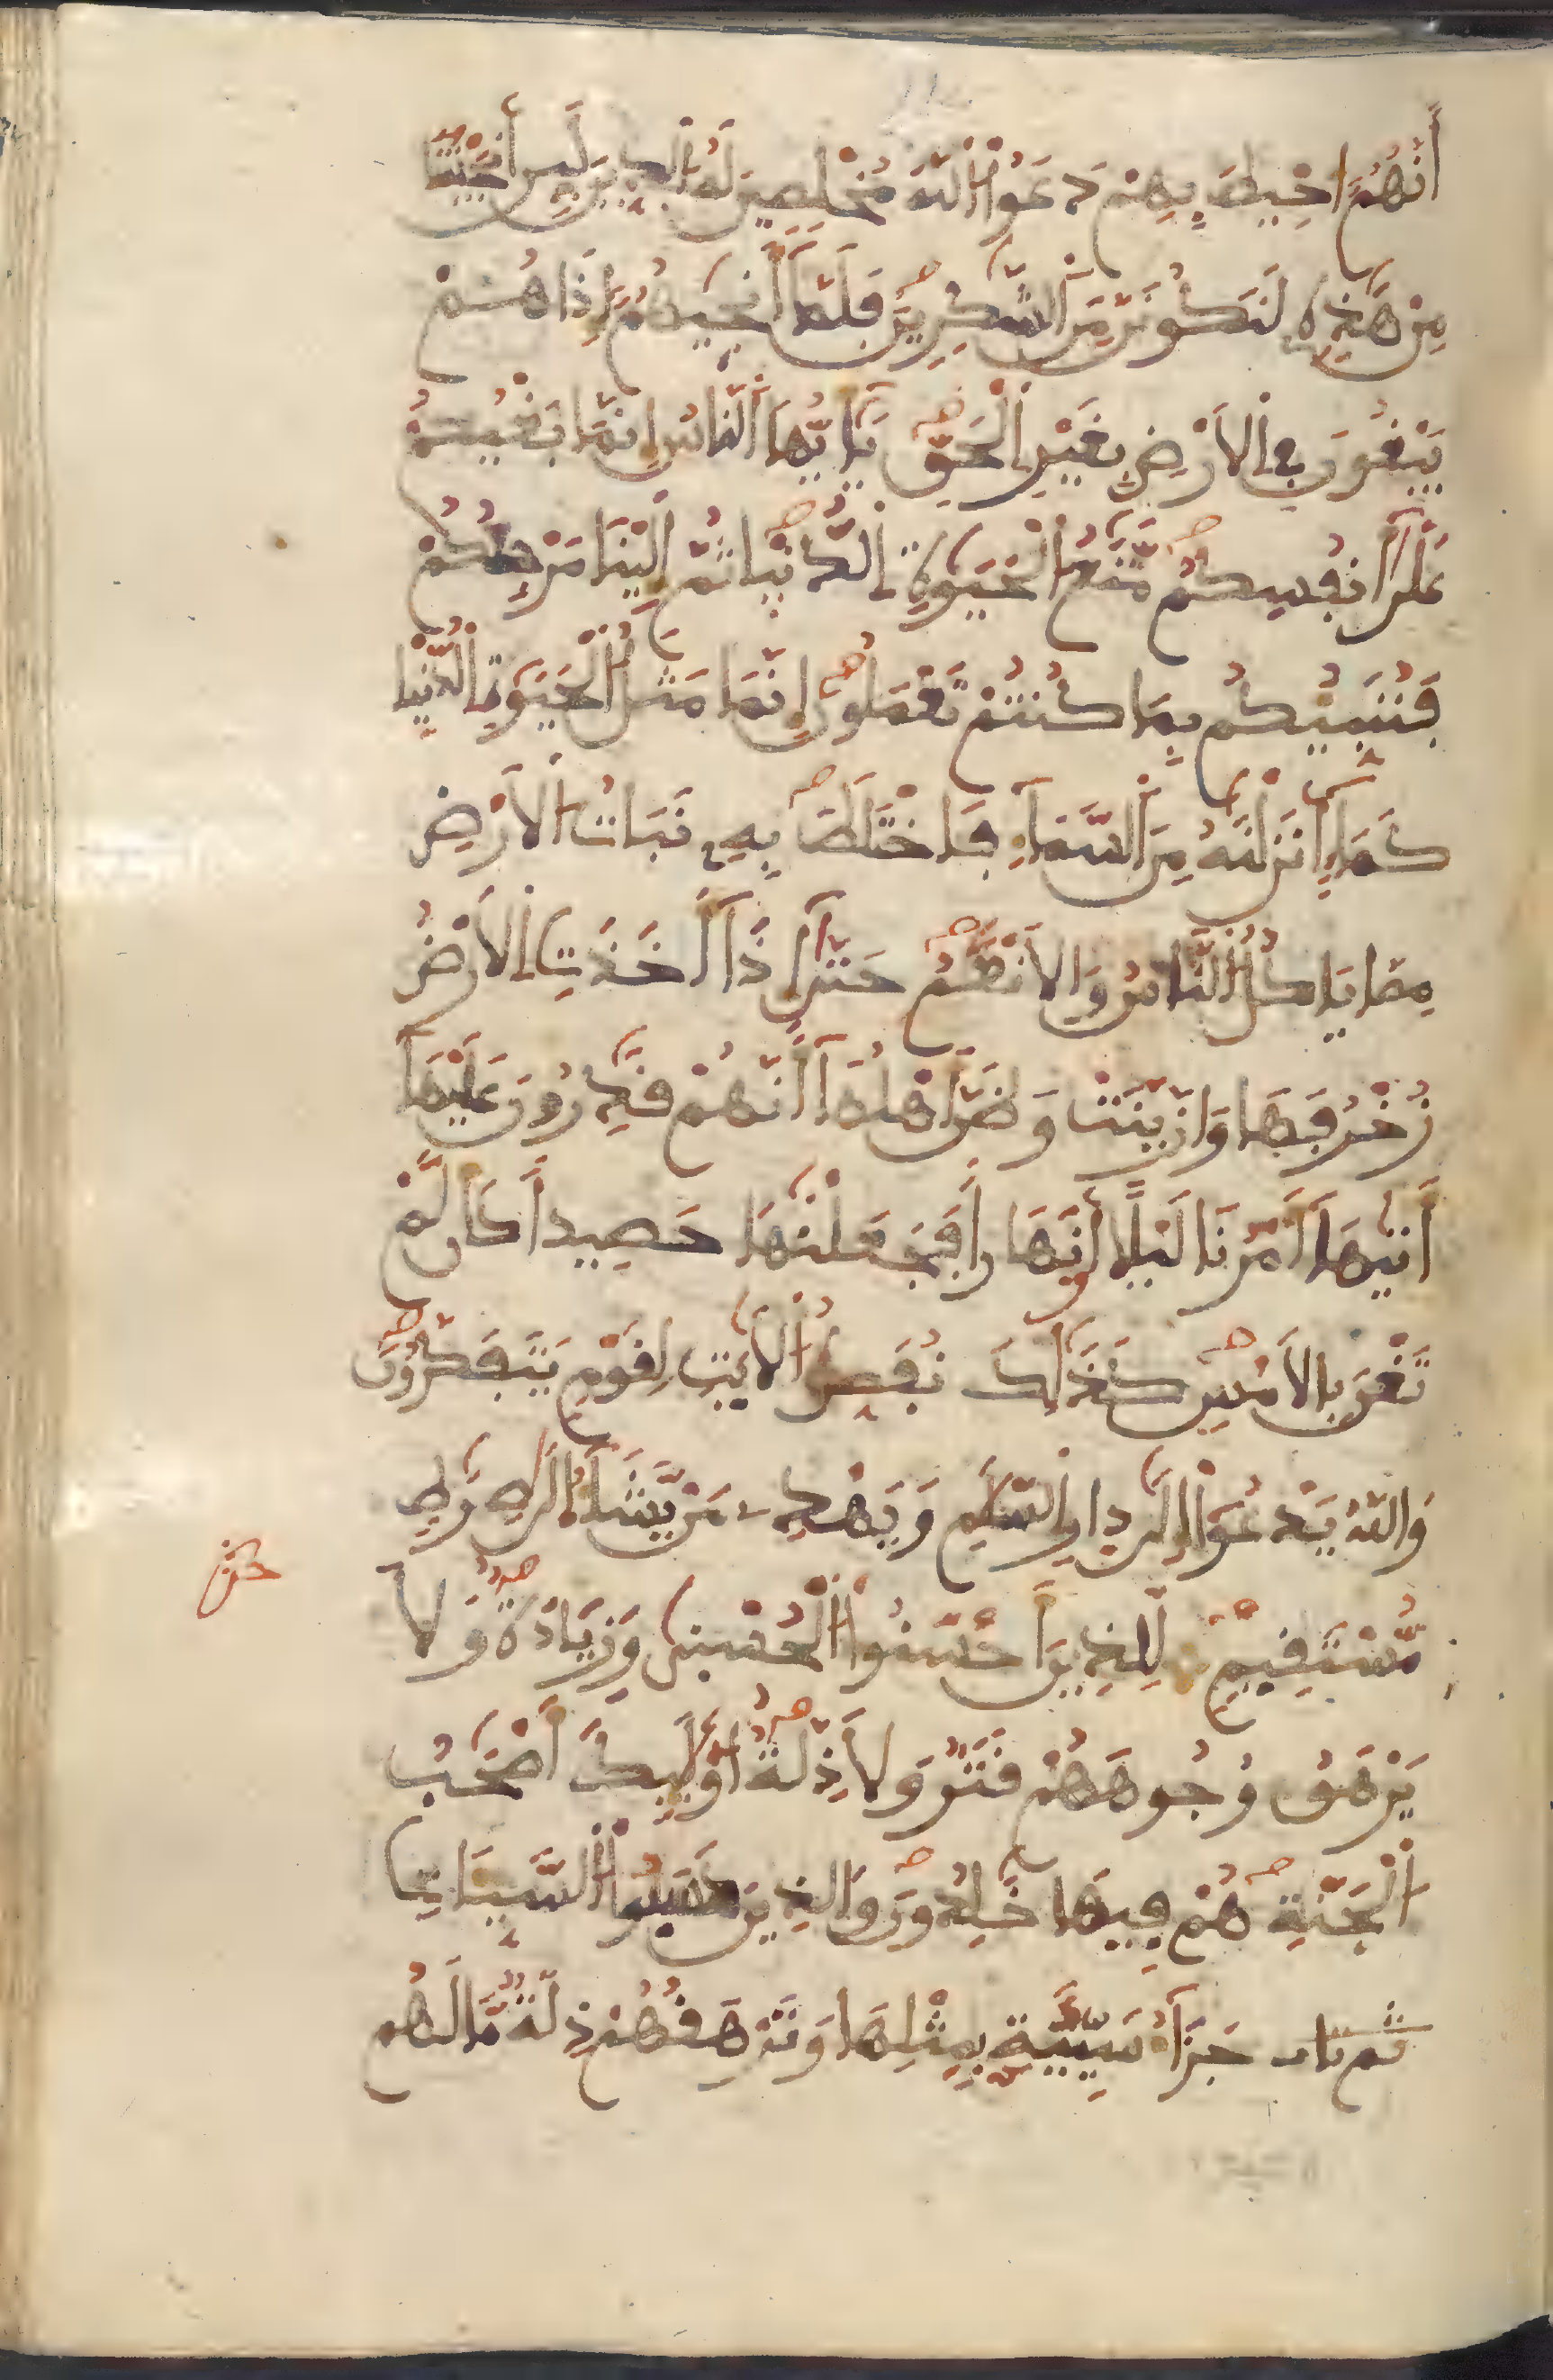 أَنَّهُمُۥٓ أُحِيطَ بِهِمْ دَعَوُا۟ اللَّهَ مُخْلِصِينَ لَهُ الدِّينَ لَئِنَ أَنجَيْتَنَا
مِنْ هَٰذِهِۦ لَنَكُونَنَّ مِنَ الشَّٰكِرِينَ فَلَمَّآ أَنجَيٰهُمُۥٓ إِذَا هُمْ
يَبْغُونَ فِے الَارْضِ بِغَيْرِ الْحَقِّ يَٰٓأَيُّهَا النَّاسُ إِنَّمَا بَغْيُكُمْ
عَلَىٰٓ أَنفُسِكُم مَّتَٰعُ الْحَيَوٰةِ الدُّنْيَا ثُمَّ إِلَيْنَا مَرْجِعُكُمْ
فَنُنَبِّئُكُم بِمَا كُنتُمْ تَعْمَلُونَ إِنَّمَا مَثَلُ الْحَيَوٰةِ الدُّنْيَا
كَمَآءٍ أَنزَلْنَٰهُ مِنَ السَّمَآءِ فَاخْتَلَطَ بِهِۦ نَبَاتُ الَارْضِ
مِمَّا يَاكُلُ النَّاسُ وَالَانْعَٰمُ حَتَّىٰٓ إِذَآ أَخَذَتِ الَارْضُ
زُخْرُفَهَا وَازَّيَّنَتْ وَظَنَّ أَهْلُهَآ أَنَّهُمْ قَٰدِرُونَ عَلَيْهَآ
أَتَيٰهَآ أَمْرُنَا لَيْلًا أَوْ نَهَارًا فَجَعَلْنَٰهَا حَصِيدًا كَأَن لَّمْ
تَغْنَ بِالَامْسِ كَذَٰلِكَ نُفَصِّلُ الَايَٰتِ لِقَوْمٍ يَتَفَكَّرُونَ
وَاللَّهُ يَدْعُوٓا۟ إِلَىٰ دَارِ السَّلَٰمِ وَيَهْدِے مَنْ يَّشَآءُ اِلَىٰ صِرَٰطٍ
مُّسْتَقِيمٍ لِّلذِينَ أَحْسَنُوا۟ الْحُسْنَىٰ وَزِيَادَةٌ وَلَا
يَرْهَقُ وُجُوهَهُمْ قَتَرٌ وَلَا ذِلَّةٌ أُو۟لَٰٓئِكَ أَصْحَٰبُ
الْجَنَّةِ هُمْ فِيهَا خَٰلِدُونَ وَالذِينَ كَسَبُوا۟ السَّيِّـَٔاتِ
جَزَآءُ سَيِّئَةٍ بِمِثْلِهَا وَتَرْهَقُهُمْ ذِلَّةٌ مَّا لَهُم